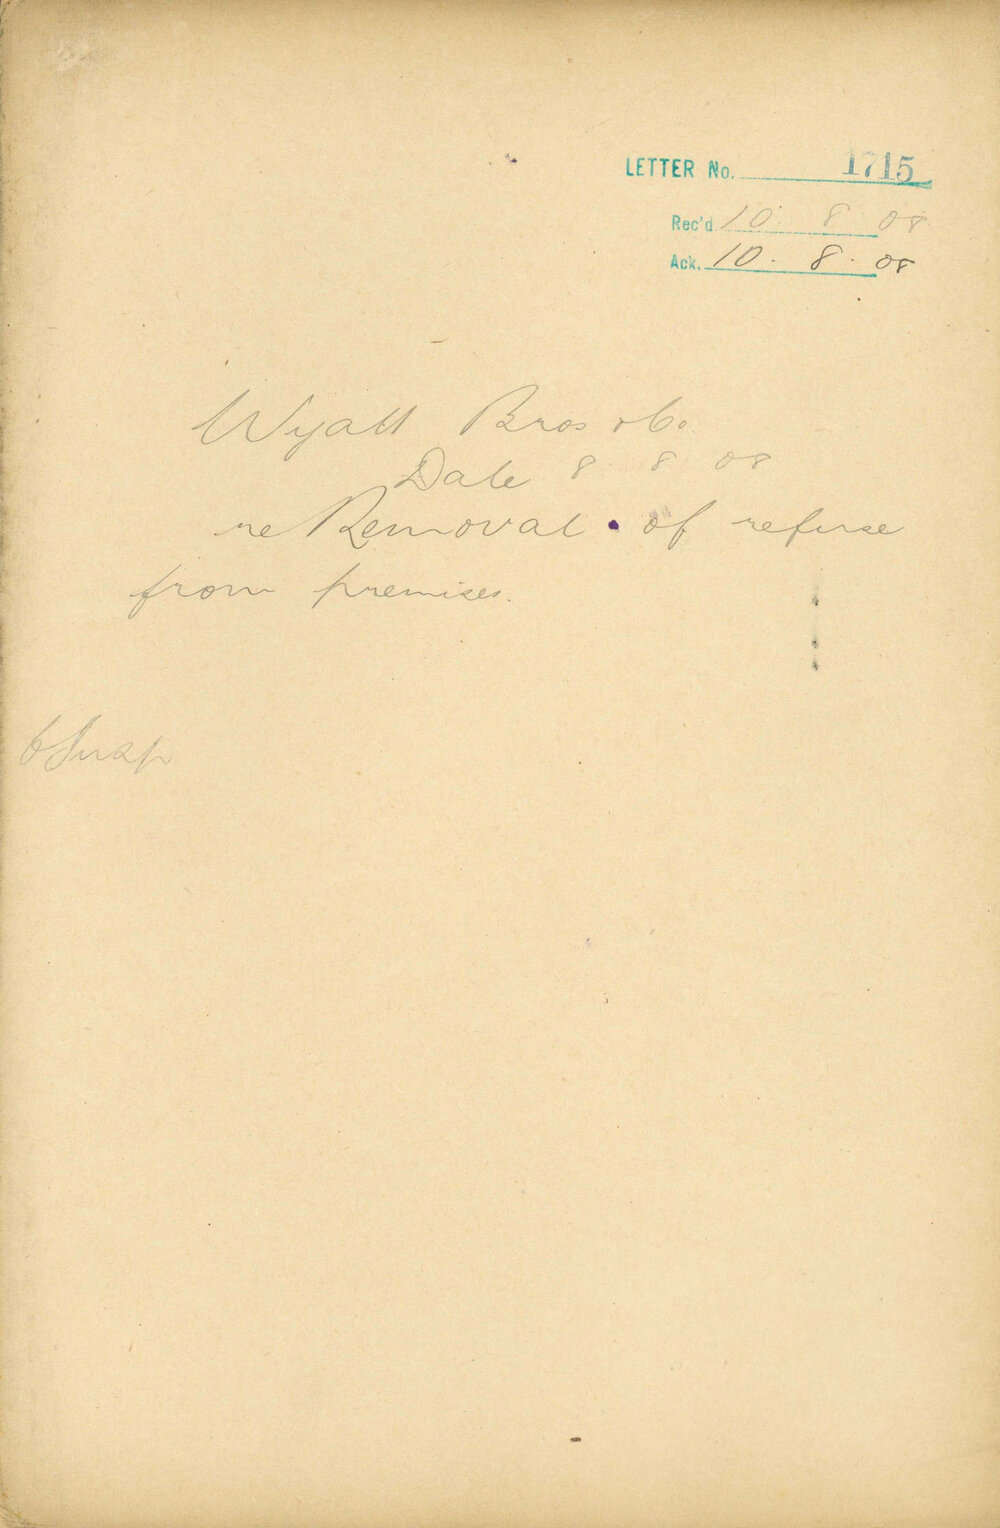 LETTER No. 1715
Rec'd 10. 8. 08
Ack. 10. 8. 08
Wyatt Bros & Co.
Date 8. 8. 08
re Removal of refuse
from premises.
C Insp